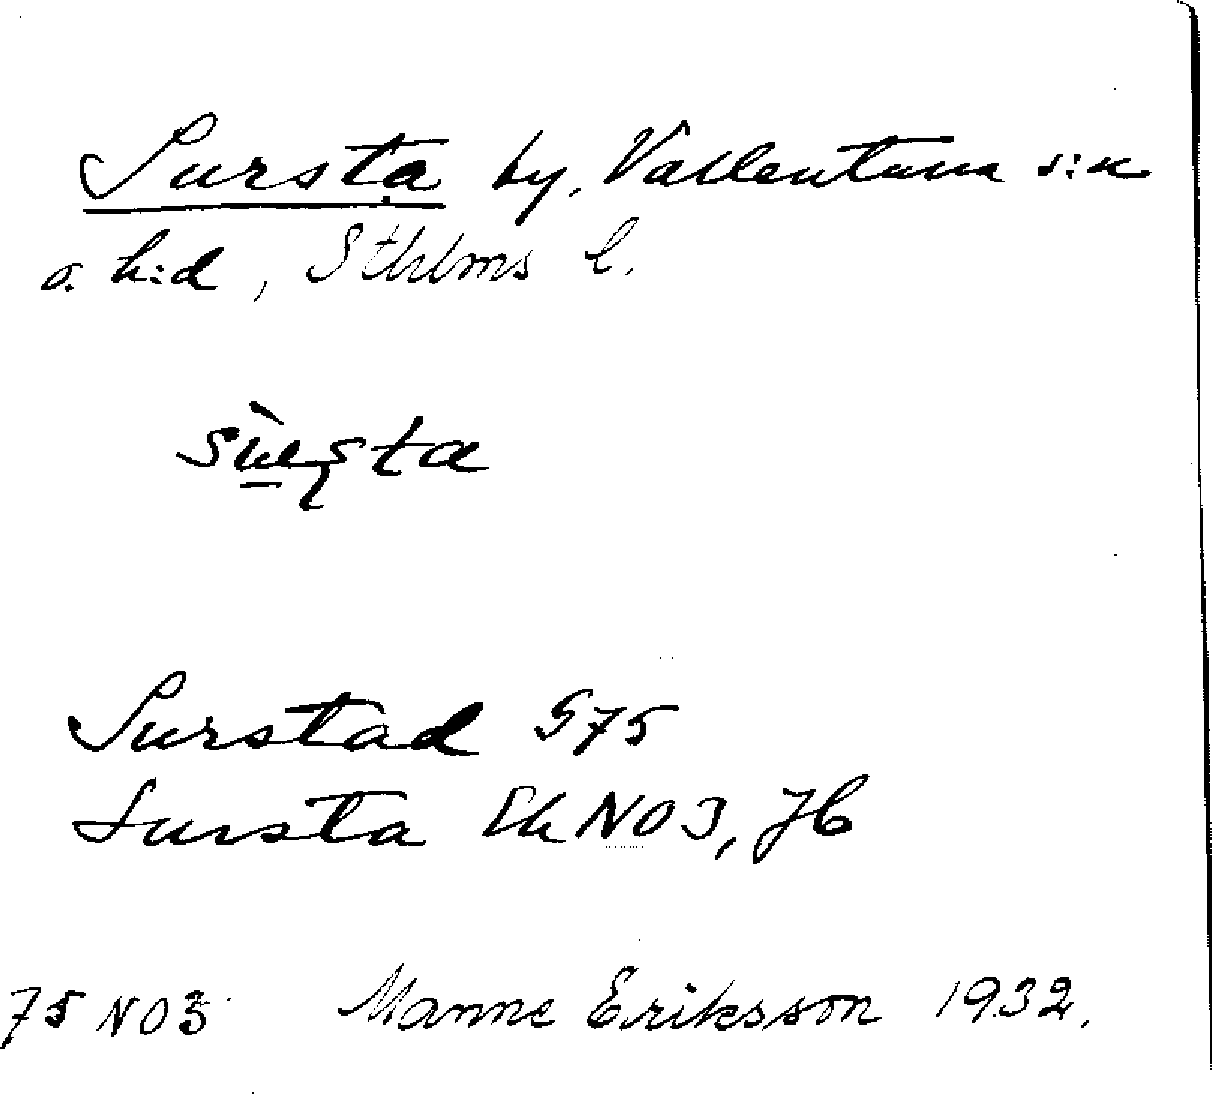 Sursta by, Vallentuna s:n
o. h:d, Sthlms l.
Surstad G75
Sursta Ek NO3, Jb
75 NO3 Manne Eriksson 1932.